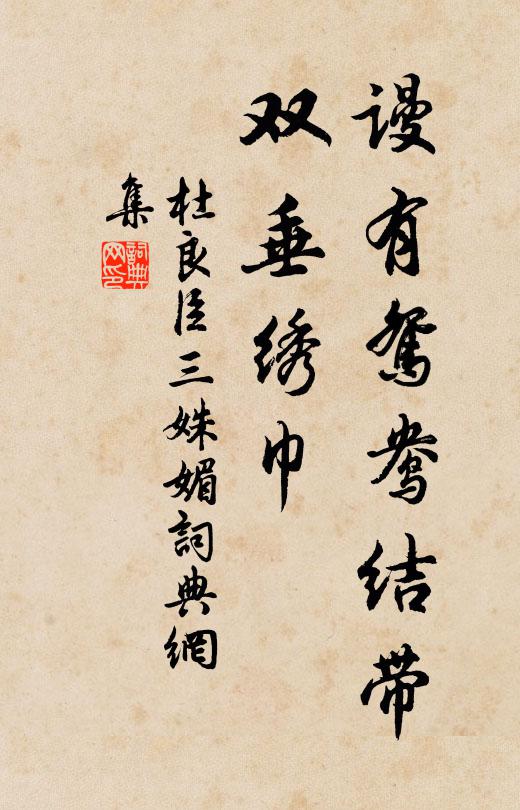 谩有鸳鸯结带
双垂绣巾
杜良臣三姝媚詞典網
集
詞典
网印